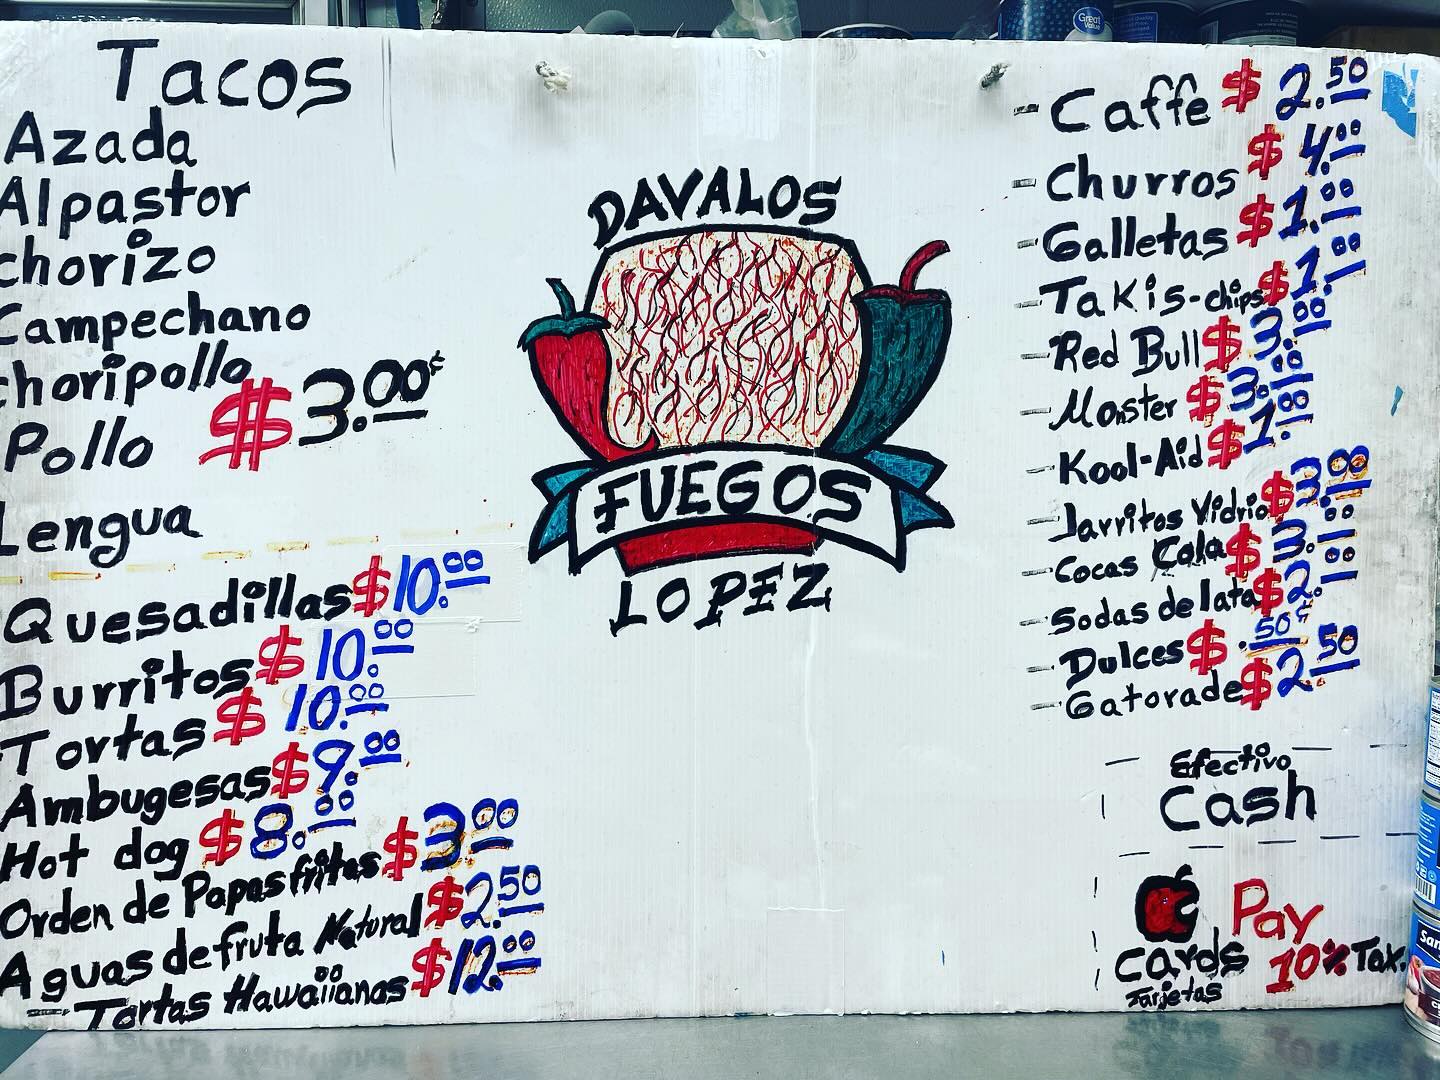 Tacos
Azada
Alpastor
chorizo
Campechano
choripollo
Pollo $3.00¢
Lengua
Quesadillas $10.00
Burritos $10.00
Tortas $10.00
Ambugesas $9.00
Hot dog $8.00
Orden de Papas fritas $3.00
Aguas de fruta Natural $2.50
Tortas Hawaiianas $12.00
DAVALOS
FUEGOS
LOPEZ
- Caffe $2.50
- Churros $4.00
- Galletas $1.00
- Takis-chips $1.00
- Red Bull $3.00
- Monster $3.00
- Kool-Aid $1.00
- Jarritos Vidrio $3.00
- Cocas Cola $3.00
- Sodas de lata $2.00
- Dulces $.50¢
- Gatorade $2.50
Efectivo
Cash
Pay
Cards 10% Tax.
Tarjetas
Great
Value